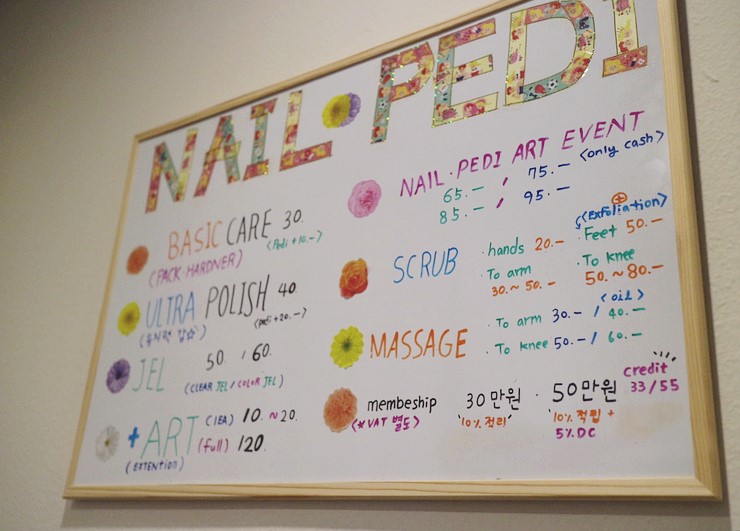 NAIL·PEDI
BASIC CARE 30.
(Pedi +10.-)
(PACK·HARDNER)
ULTRA POLISH 40
(pedi +20.-)
JEL 50. / 60.
(CLEAR JEL / COLOR JEL)
+ART (1EA) 10. ~ 20.
(full) 120.
(EXTENTION)
NAIL·PEDI ART EVENT
65.- / 75.- <only cash>
85.- / 95.-
<Exfoliation>
SCRUB
·hands 20.-
·To arm
30.~50.-
·Feet 50.-
·To knee
50.~80.-
<oil>
MASSAGE
·To arm 30.- / 40.-
·To knee 50.- / 60.-
membeship 30만원 · 50만원
<*VAT 별도>
10% 적립+
5% DC
credit
33/55